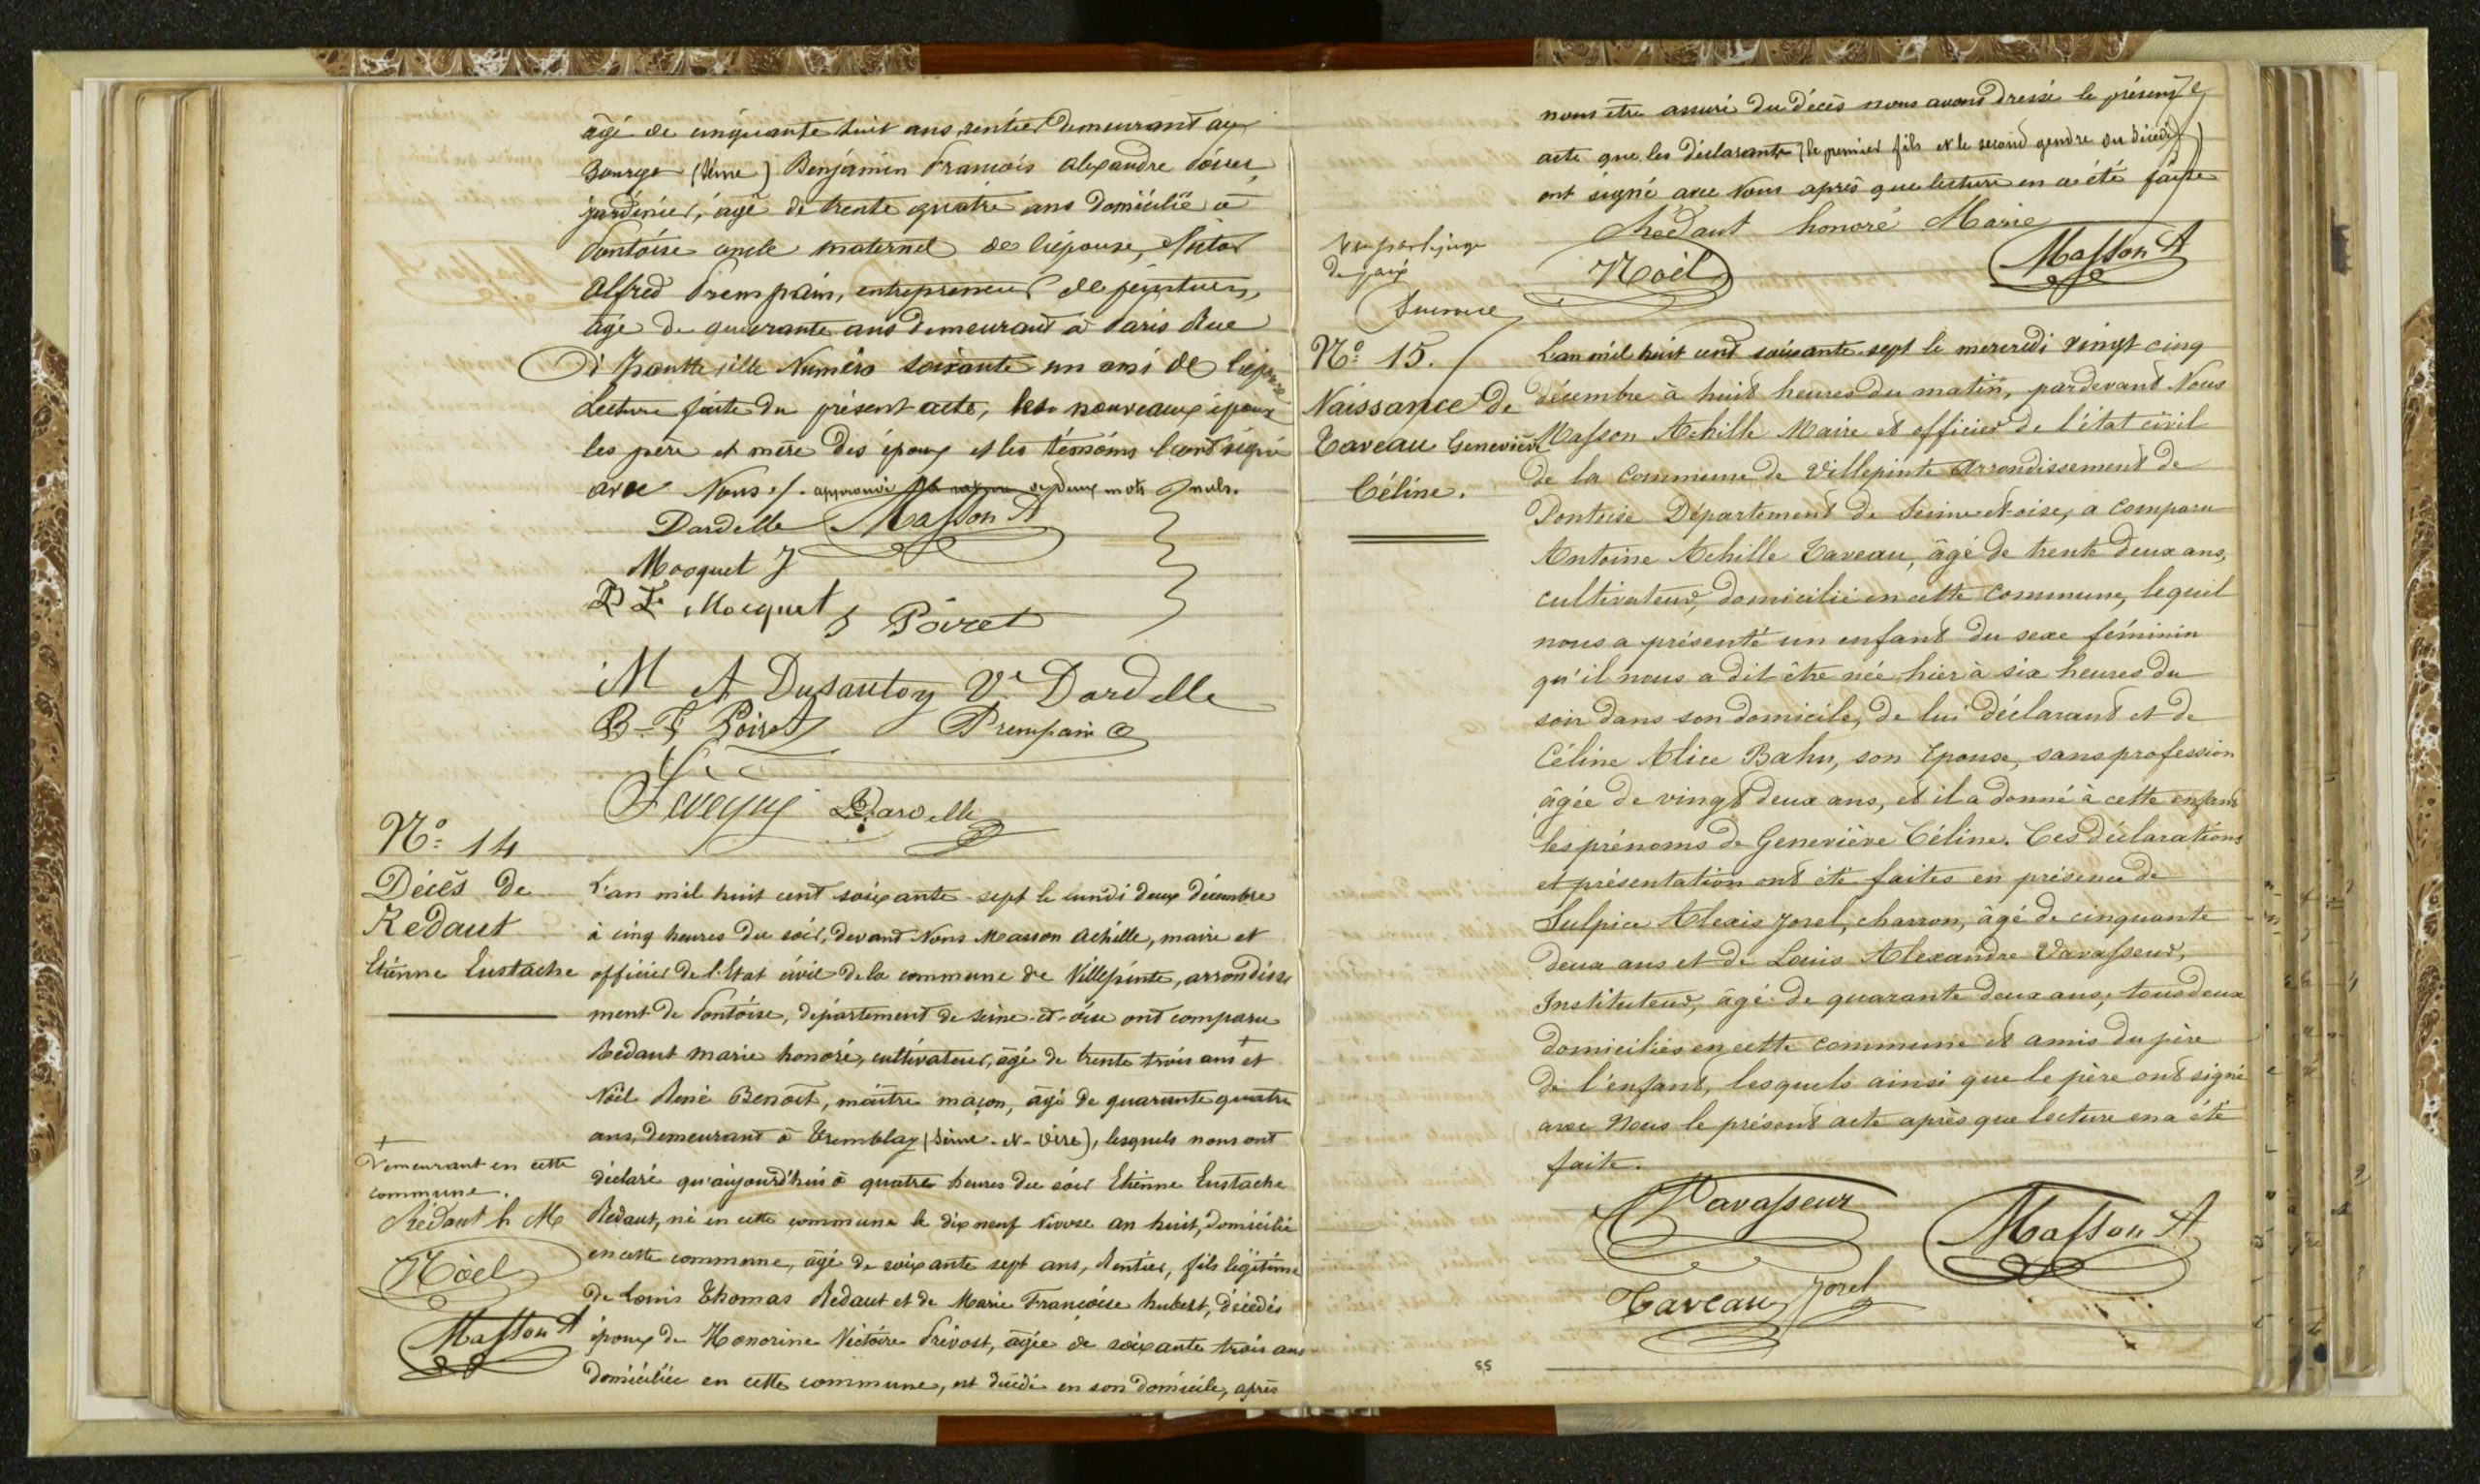 âgé de cinquante huit ans, rentier demeurant au
Bourget (Seine) Benjamin François Alexandre Poiret,
jardinier, âgé de trente quatre ans domicilié à
Pontoise oncle maternel de l'épouse, Nestor
Alfred Prempain, entrepreneur de peinture,
âgé de quarante ans demeurant à Paris Rue
Numéro soixante un ami de l'épouse
Lecture faite du présent acte, les nouveaux époux
les père et mère des époux et les témoins l'ont signé
avec Nous ./. approuvé de deux mots nuls.
Dardelle Masson A
Mocquet J
Mocquet
Poiret
M A Dusautoy Ve Dardelle
B-F Poiret Prempain a
Dardelle
No: 14
Décès de
Redaut
Etienne Eustache
L'an mil huit cent soixante-sept le lundi deux décembre
à cinq heures du soir, devant Nous Masson Achille, maire et
officier de l'Etat civil de la commune de Villepinte, arrondisse
ment de Pontoise, département de Seine-et-oise ont comparu
Redaut marie honoré, cultivateur, âgé de trente trois ans + et
Noël René Benoît, maître maçon, âgé de quarante quatre
ans, demeurant à Tremblay (Seine-et-Oise), lesquels nous ont
déclaré qu'aujourd'hui à quatre heures du soir Etienne Eustache
Redaut, né en cette commune le dix neuf nivose an huit, domicilié
en cette commune, âgé de soixante sept ans, Rentier, fils légitime
de Louis Thomas Redaut et de Marie Françoise hubert, décédés
époux de Honorine Victoire Prévost, âgée de soixante trois ans
domiciliée en cette commune, est décédé en son domicile, après
+
demeurant en cette
commune.
Redaut h M
Noël
Masson A
nous être assuré du décès nous avons dressé le présent
acte que les déclarants (le premier fils et le second gendre du décédé)
ont signé avec Nous après que lecture en a été faite
Redaut honoré Marie
Noël
Masson A
Vu par le juge
de paix
No: 15.
Naissance de
Taveau Geneviève
Céline.
L'an mil huit cent soixante-sept le mercredi vingt-cinq
décembre à huit heures du matin, pardevant Nous
Masson Achille Maire et officier de l'état civil
de la Commune de Villepinte Arrondissement de
Pontoise Département de Seine-et-oise, a comparu
Antoine Achille Taveau, âgé de trente deux ans,
cultivateur, domicilié en cette Commune, lequel
nous a présenté un enfant du sexe féminin
qu'il nous a dit être née hier à six heures du
soir dans son domicile, de lui déclarant et de
Céline Alice Bahu, son Epouse, sans profession
âgée de vingt deux ans, et il a donné à cette enfant
les prénoms de Geneviève Céline. Ces déclarations
et présentation ont été faites en présence de
Sulpice Alexis Jorel, charron, âgé de cinquante
deux ans et de Louis Alexandre Vavasseur,
Instituteur, âgé de quarante deux ans; tous deux
domiciliés en cette commune et amis du père
de l'enfant, lesquels ainsi que le père ont signé
avec Nous le présent acte après que lecture en a été
faite.
Vavasseur
Masson A
Taveau Jorel
55